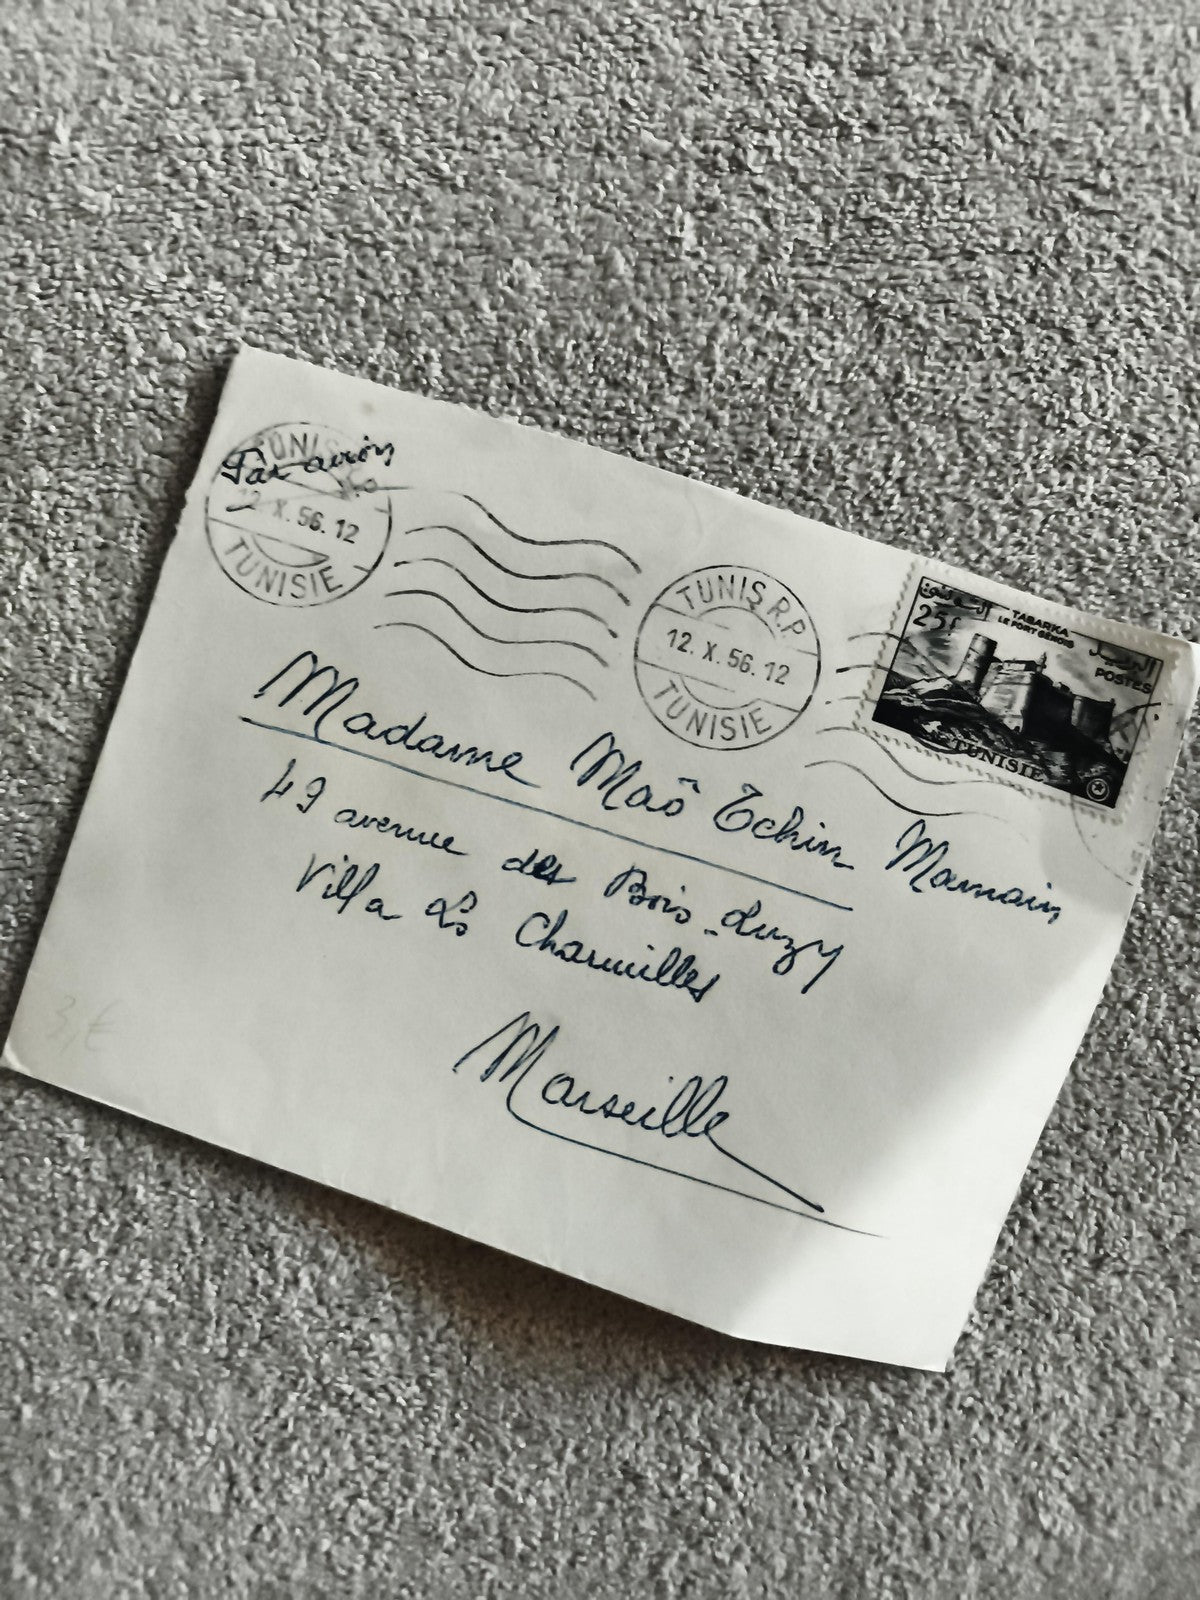 Par avion
TUNIS
12. X. 56. 12
TUNISIE
TUNIS R.P.
12. X. 56. 12
TUNISIE
التونسية
25f
TABARKA
LE FORT GÉNOIS
البريد
POSTES
TUNISIE
Madame Maô Tchin Mamain
49 avenue des Bois-Luzy
Villa Ls Charmilles
Marseille
3,€